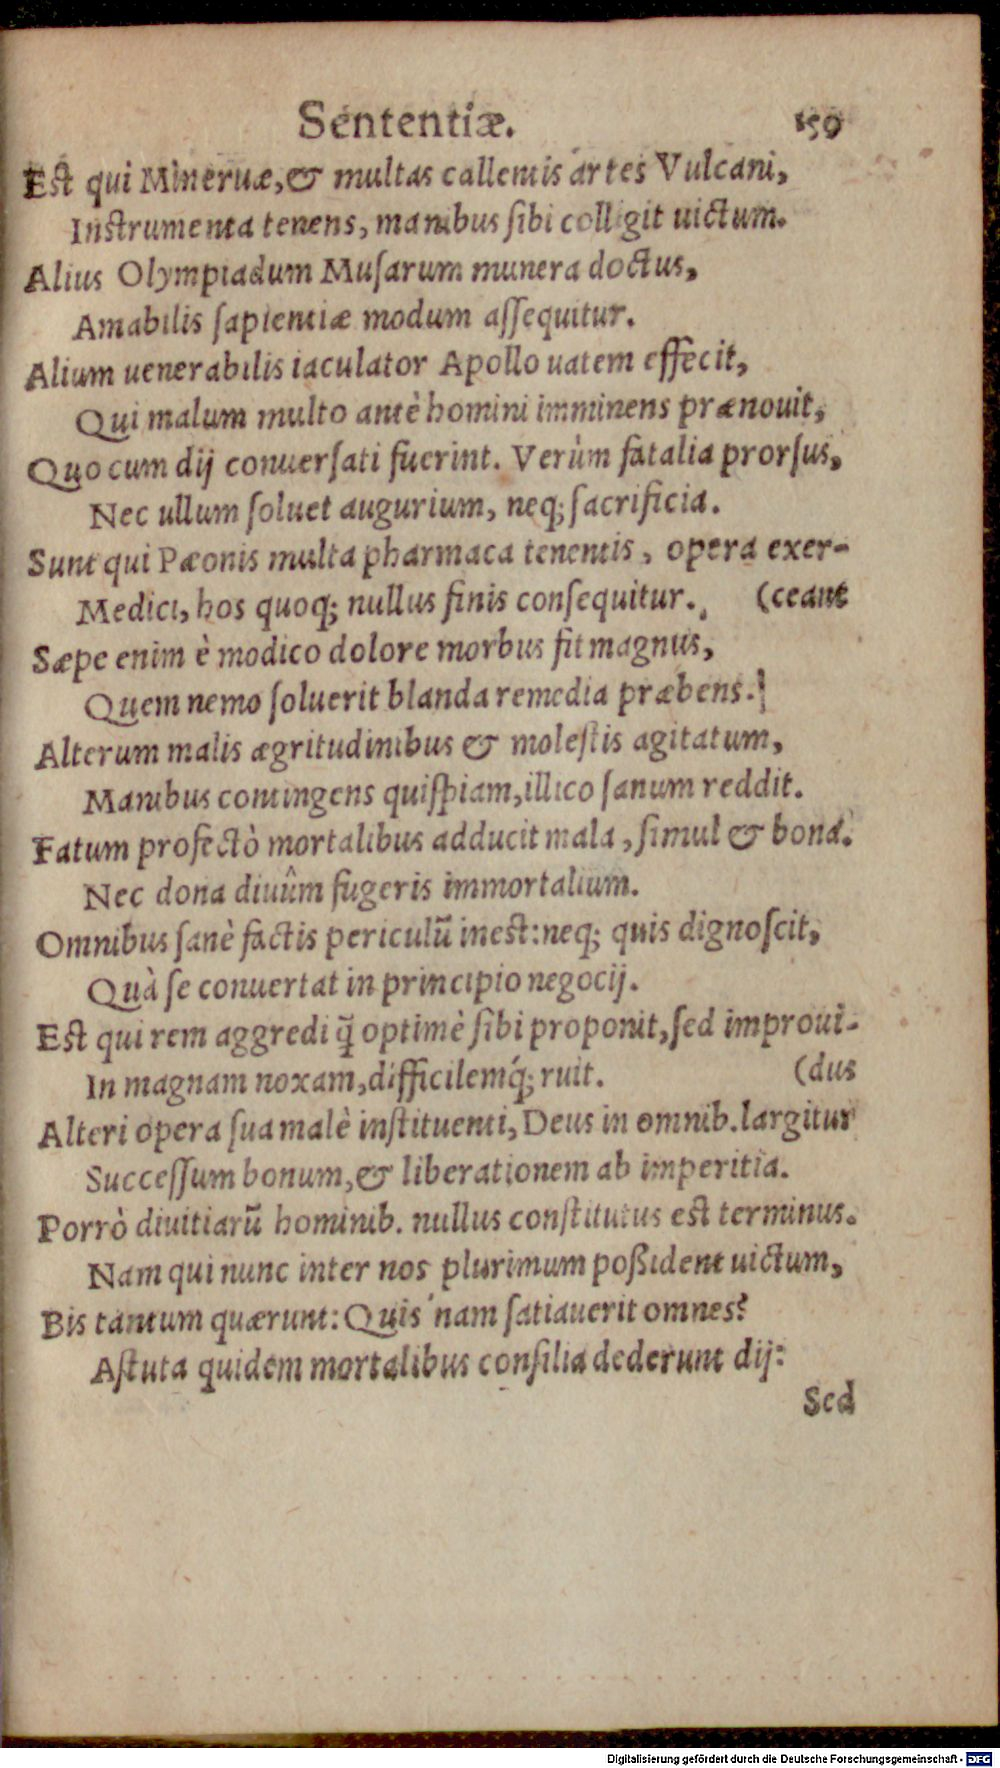 Sententiæ. 159
Est qui Mineruæ,& multas callentis artes Vulcani,
Instrumenta tenens, manibus ſibi colligit uictum.
Alius Olympiadum Muſarum munera doctus,
Amabilis ſapientiæ modum aſſequitur.
Alium uenerabilis iaculator Apollo uatem effecit,
Qui malum multo antè homini imminens prænouit,
Quo cum dij conuerſati fuerint. Verùm fatalia prorſus,
Nec ullum ſoluet augurium, neq; ſacrificia.
Sunt qui Pæonis multa pharmaca tenentis, opera exer-
Medici, hos quoq; nullus finis conſequitur. (ceant
Sæpe enim è modico dolore morbus fit magnus,
Quem nemo ſoluerit blanda remedia præbens.
Alterum malis ægritudinibus & moleſtis agitatum,
Manibus contingens quiſpiam, illico ſanum reddit.
Fatum profectò mortalibus adducit mala, ſimul & bona.
Nec dona diuûm fugeris immortalium.
Omnibus ſanè factis periculũ inest: neq; quis dignoſcit,
Quà ſe conuertat in principio negocij.
Est qui rem aggredi q̃ optimè ſibi proponit, ſed improui-
In magnam noxam, difficilemq́; ruit. (dus
Alteri opera ſua malè inſtituenti, Deus in omnib. largitur
Succeſſum bonum, & liberationem ab imperitia.
Porrò diuitiarũ hominib. nullus conſtitutus est terminus.
Nam qui nunc inter nos plurimum poßident uictum,
Bis tantum quærunt: Quis'nam ſatiauerit omnes?
Aſtuta quidem mortalibus conſilia dederunt dij:
Sed
Digitalisierung gefördert durch die Deutsche Forschungsgemeinschaft - DFG